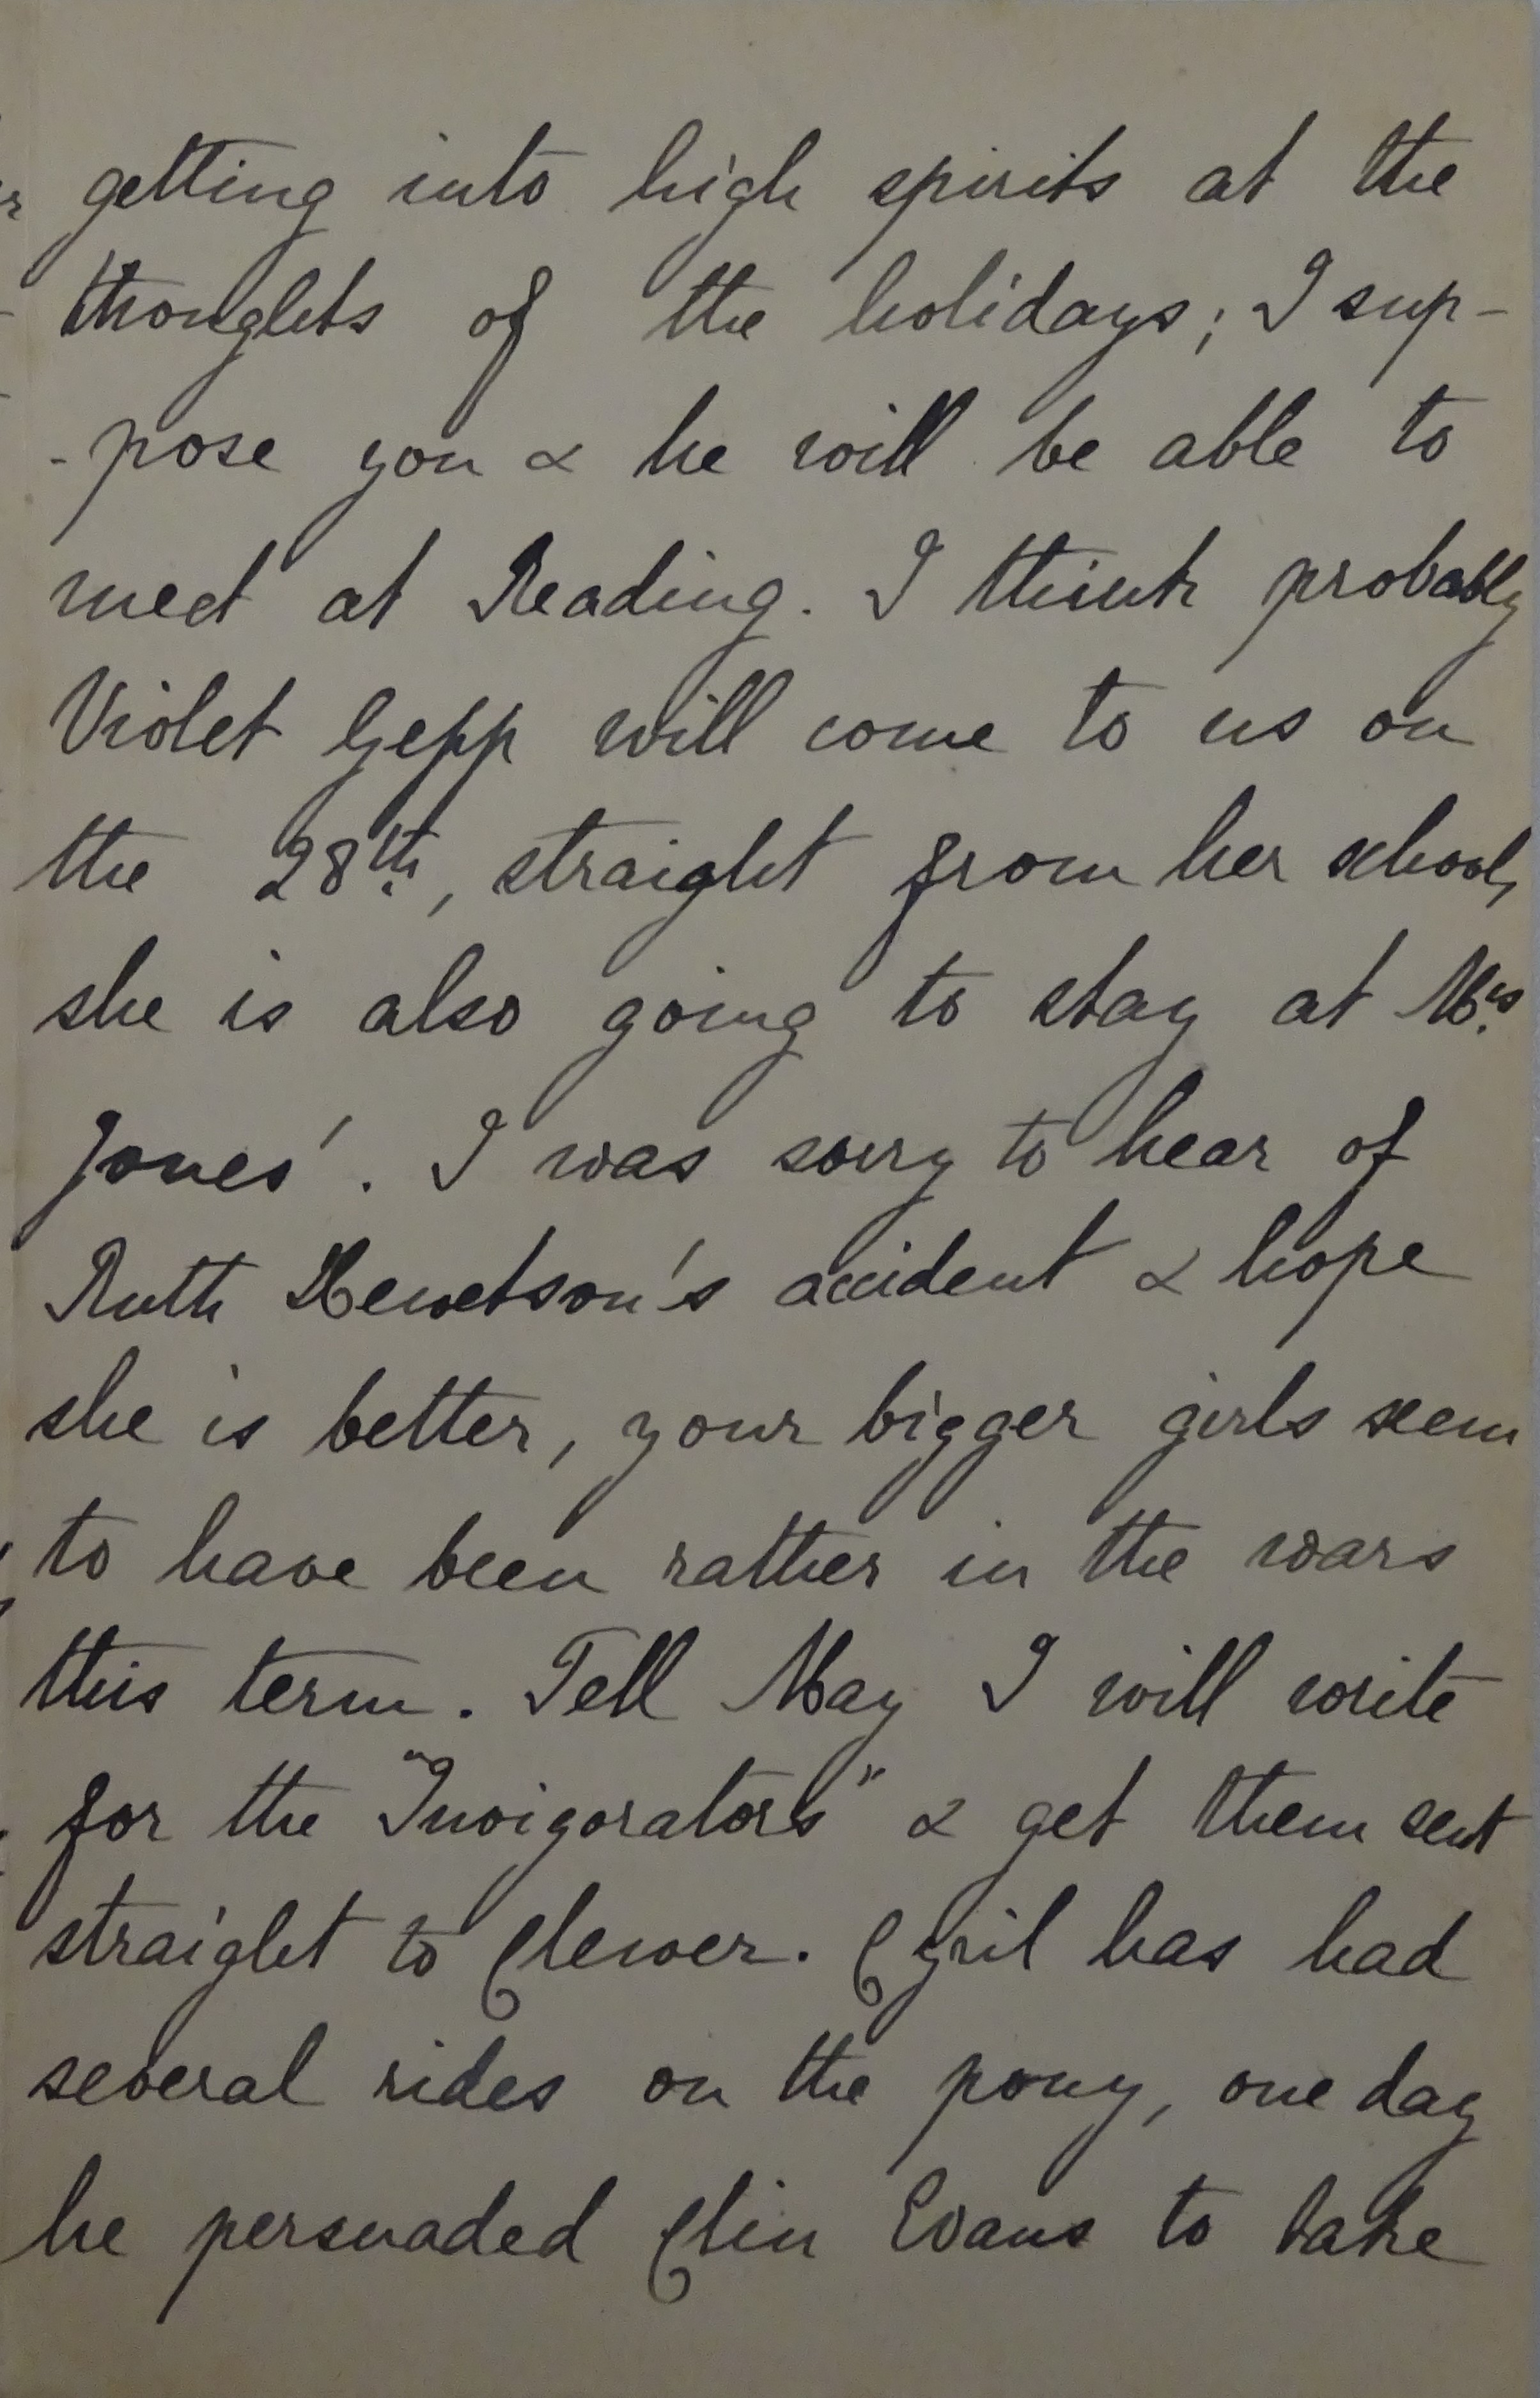 getting into high spirits at the
thoughts of the holidays; I sup-
-pose you & he will be able to
meet at Reading. I think probably
Violet Gepp will come to us on
the 28th, straight from her school,
she is also going to stay at Mrs
Jones'. I was sorry to hear of
Ruth Hewetson's accident & hope
she is better, your bigger girls seem
to have been rather in the wars
this term. Tell May I will write
for the "Invigorators" & get them sent
straight to Clewer. Cyril has had
several rides on the pony, one day
he persuaded Clin Evans to take